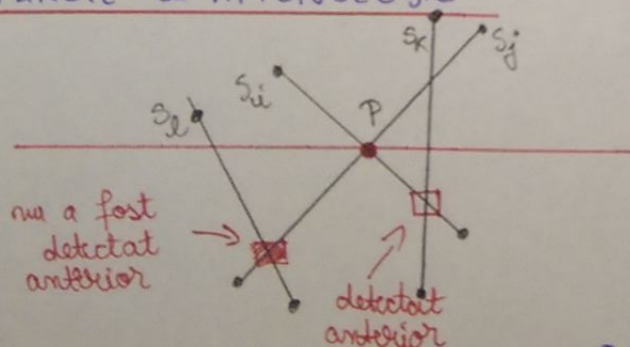 Sk
Sj
Si
P
Sl
nu a fost
detectat
anterior
detectat
anterior